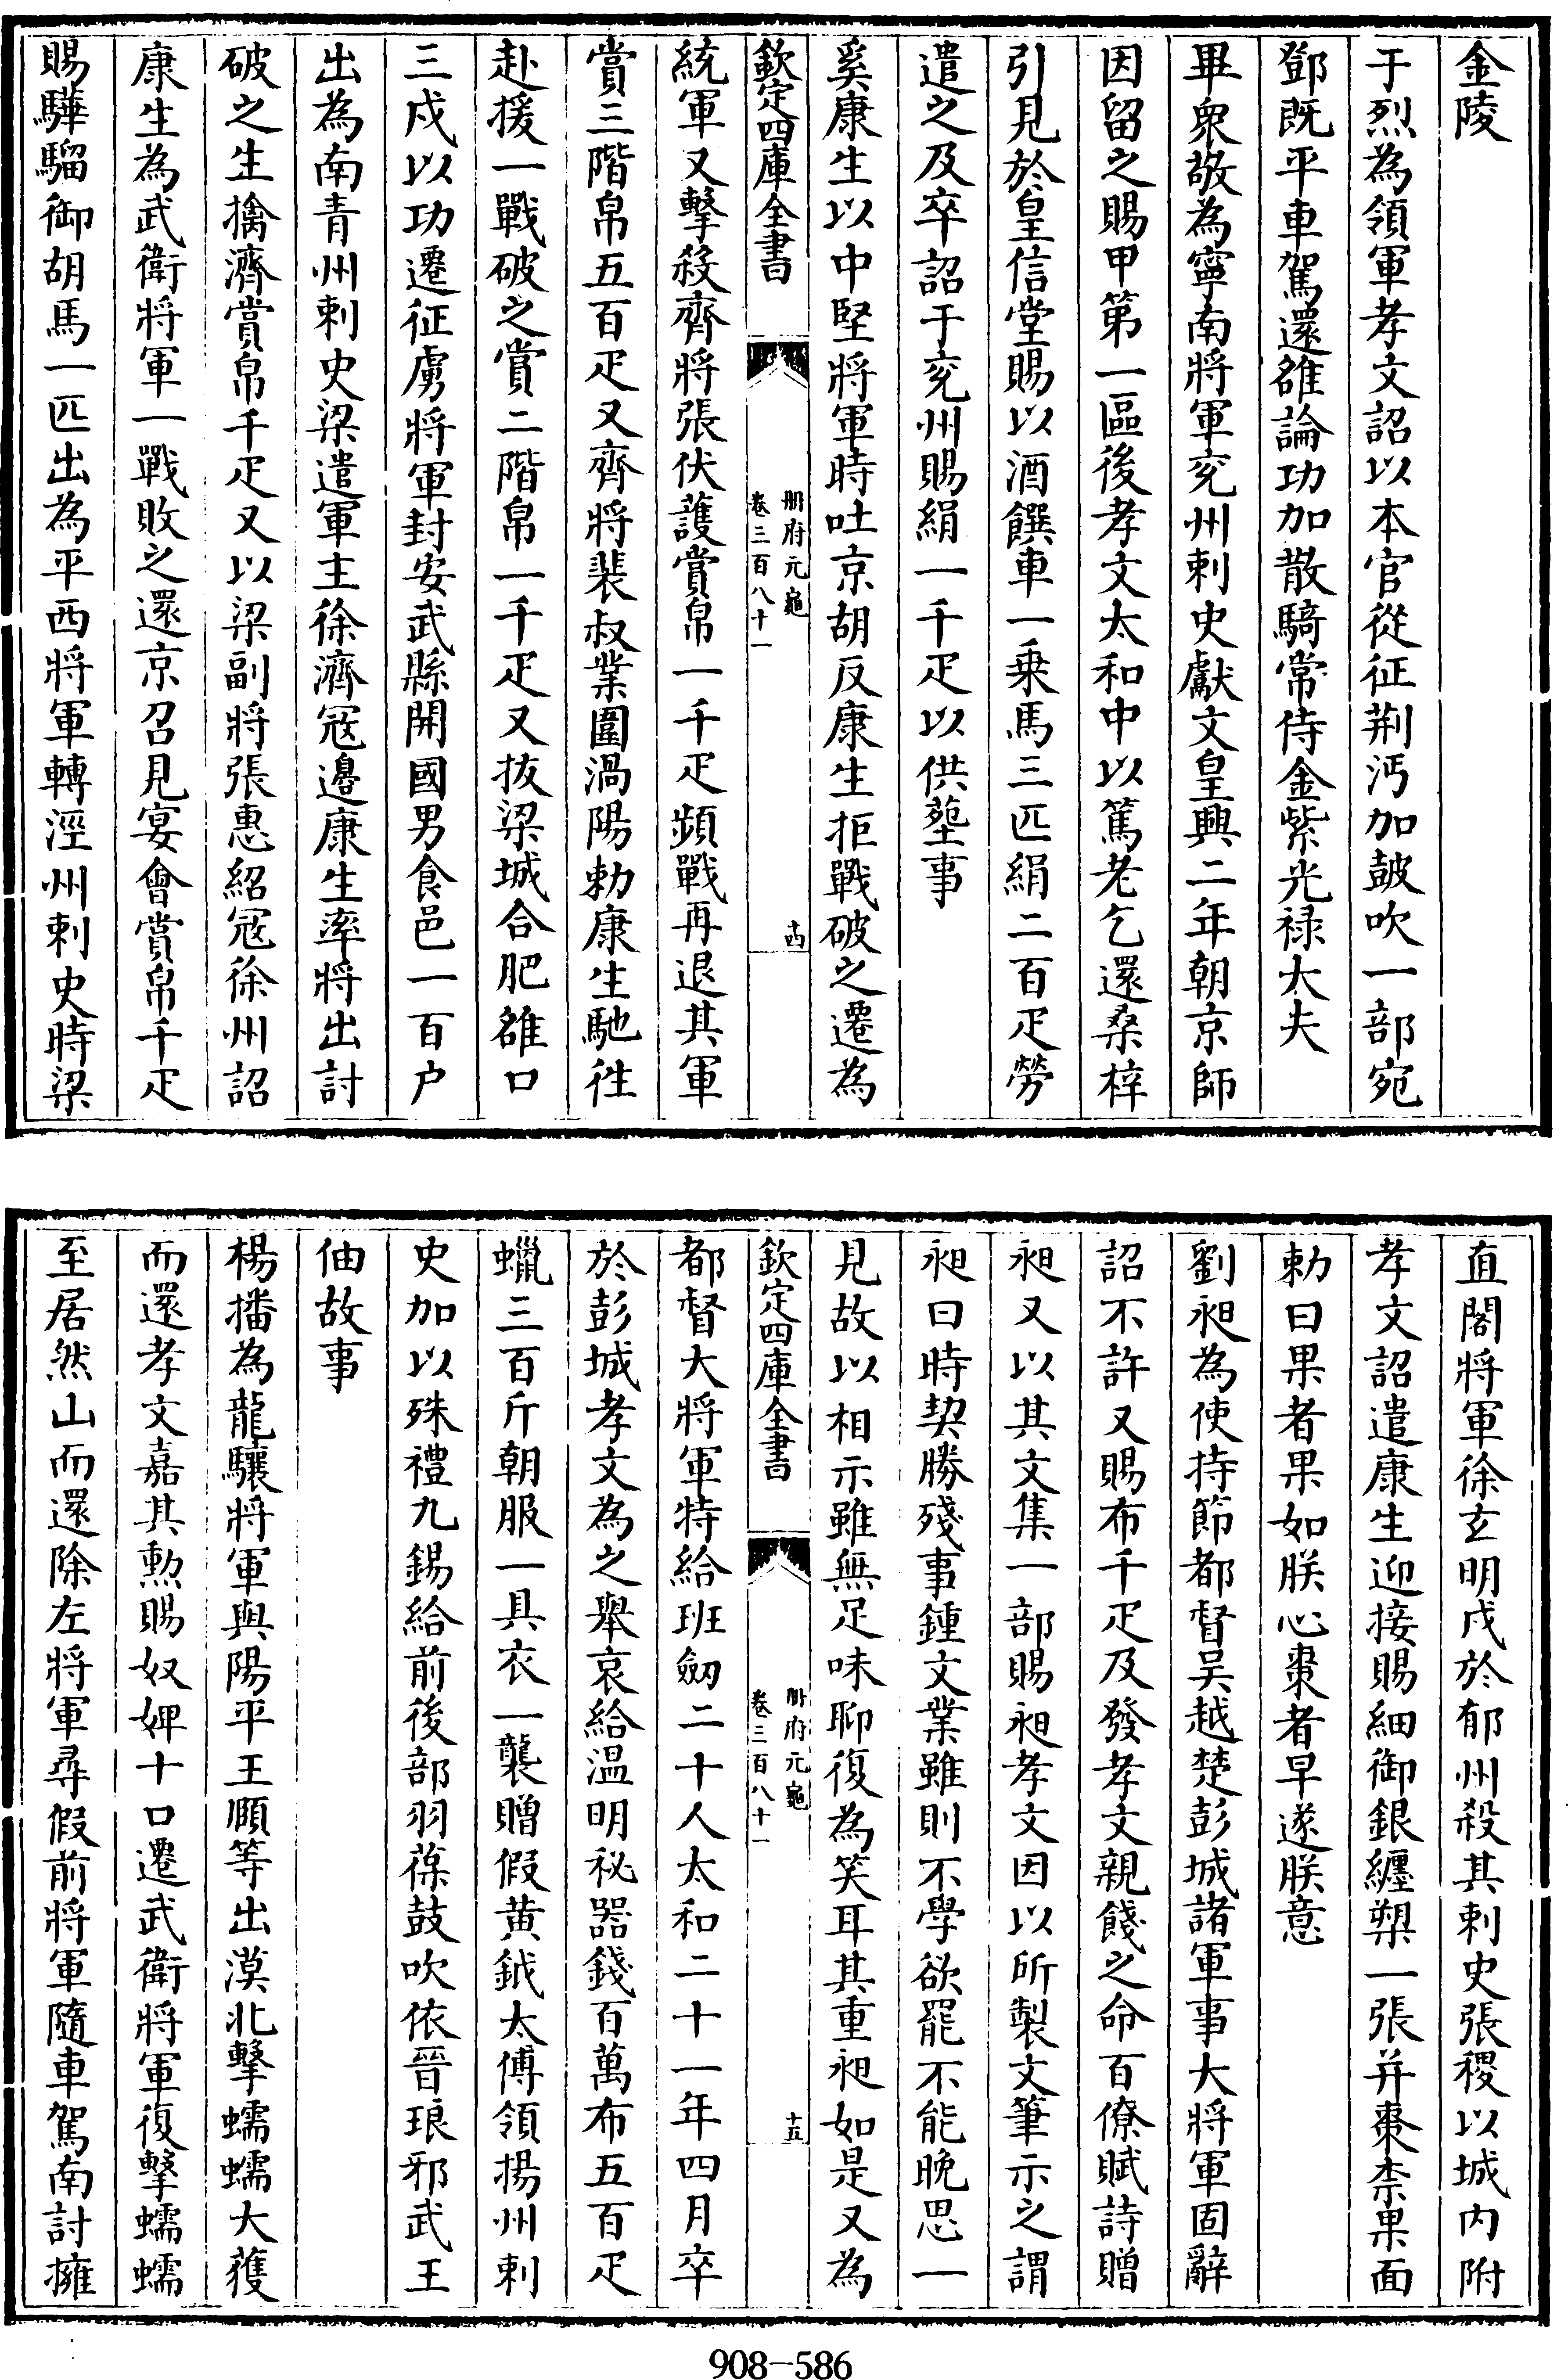 金陵
于烈為領軍孝文詔以本官從征荆沔加鼓吹一部宛
鄧既平車駕還雒論功加散騎常侍金紫光禄大夫
畢衆敬為寧南將軍兖州刺史獻文皇興二年朝京師
因留之賜甲第一區後孝文太和中以篤老乞還桑梓
引見於皇信堂賜以酒饌車一乗馬三匹絹二百疋勞
遣之及卒詔于兖州賜絹一千疋以供塟事
奚康生以中堅將軍時吐京胡反康生拒戰破之遷為
欽定四庫全書
册府元龜
卷三百八十一
十四
統軍又擊殺齊將張伏護賞帛一千疋頻戰再退其軍
賞三階帛五百疋又齊將裴叔業圍渦陽勅康生馳往
赴援一戰破之賞二階帛一千疋又拔梁城合肥雒口
三戍以功遷征虜將軍封安武縣開國男食邑一百户
出為南青州刺史梁遣軍主徐濟冦邉康生率將出討
破之生擒濟賞帛千疋又以梁副將張惠紹冦徐州詔
康生為武衛將軍一戰敗之還京召見宴會賞帛千疋
賜驊騮御胡馬一匹出為平西將軍轉涇州刺史時梁
直閤將軍徐玄明戍於郁州殺其刺史張稷以城内附
孝文詔遣康生迎接賜細御銀纏槊一張并棗柰果面
勅曰果者果如朕心棗者早遂朕意
劉昶為使持節都督吴越楚彭城諸軍事大將軍固辭
詔不許又賜布千疋及發孝文親餞之命百僚賦詩贈
昶又以其文集一部賜昶孝文因以所製文筆示之謂
昶曰時契勝殘事鍾文業雖則不學欲罷不能晩思一
見故以相示雖無足味聊復為笑耳其重昶如是又為
欽定四庫全書
册府元龜
卷三百八十一
十五
都督大將軍特給班劒二十人太和二十一年四月卒
於彭城孝文為之舉哀給温明秘器錢百萬布五百疋
蠟三百斤朝服一具衣一襲贈假黄鉞太傅領揚州刺
史加以殊禮九錫給前後部羽葆鼓吹依晉琅邪武王
伷故事
楊播為龍驤將軍與陽平王頥等出漠北擊蠕蠕大獲
而還孝文嘉其勲賜奴婢十口遷武衛將軍復擊蠕蠕
至居然山而還除左將軍尋假前將軍隨車駕南討擁
908-586